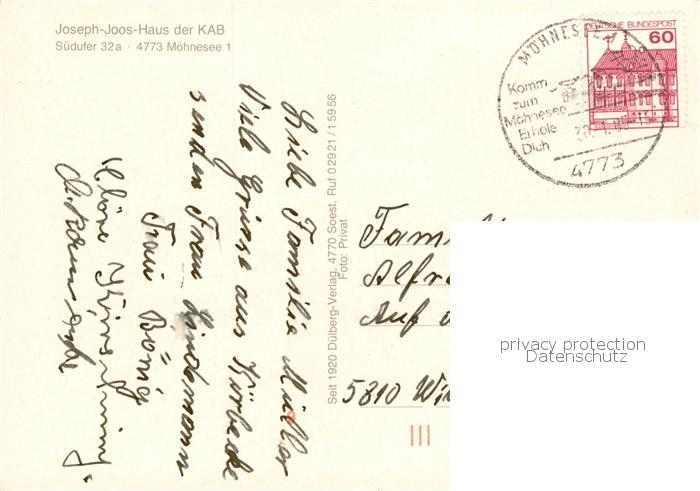 Joseph-Joos-Haus der KAB
Südufer 32a · 4773 Möhnesee 1
Liebe Familie Müller
Viele Grüsse aus Körbecke
senden Frau Lindemann
Frau Bönig
Seit 1920 Dülberg-Verlag, 4770 Soest, Ruf 02921/15956
Foto: Privat
MÖHNESEE
Komm
zum
Möhnesee
Erhole
Dich
4773
DEUTSCHE BUNDESPOST
60
Fam
Alfr
Auf
5810 Wi
privacy protection
Datenschutz